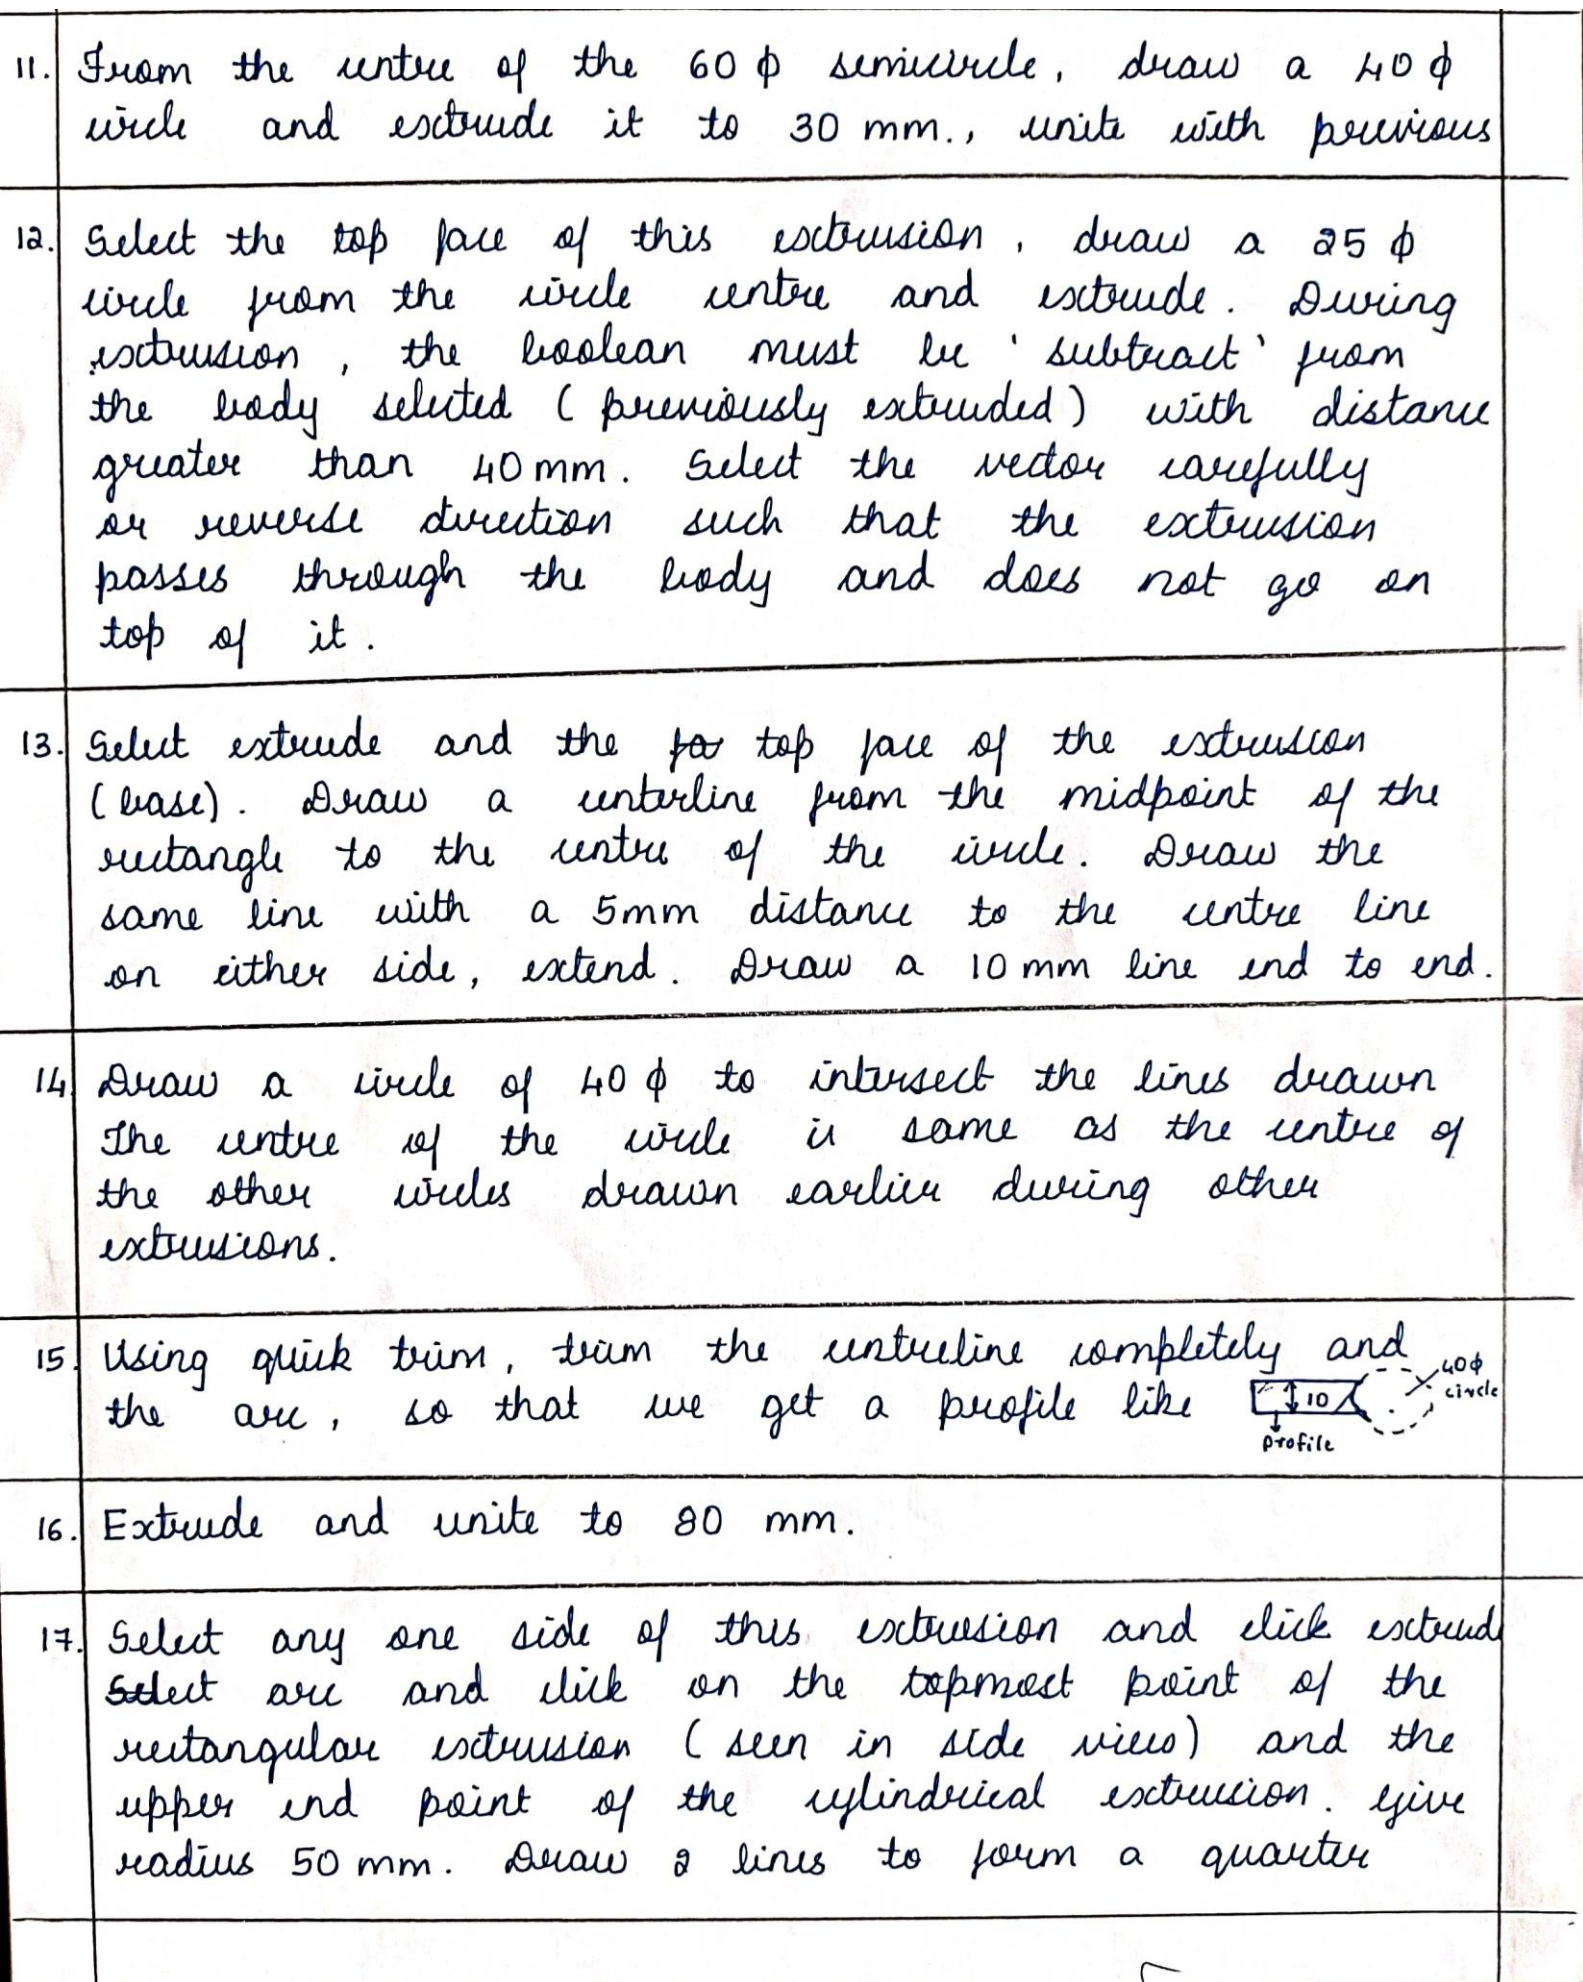 11. From the centre of the 60 ϕ semicircle, draw a 40 ϕ
circle and extrude it to 30 mm., unite with previous
12. Select the top face of this extrusion, draw a 25 ϕ
circle from the circle centre and extrude. During
extrusion, the boolean must be 'subtract' from
the body selected (previously extruded) with distance
greater than 40 mm. Select the vector carefully
or reverse direction such that the extrusion
passes through the body and does not go on
top of it.
13. Select extrude and the top face of the extrusion
(base). Draw a centerline from the midpoint of the
rectangle to the centre of the circle. Draw the
same line with a 5mm distance to the centre line
on either side, extend. Draw a 10 mm line end to end.
14. Draw a circle of 40 ϕ to intersect the lines drawn
The centre of the circle is same as the centre of
the other circles drawn earlier during other
extrusions.
15. Using quick trim, trim the centreline completely and
the arc, so that we get a profile like
10
40ϕ
circle
profile
16. Extrude and unite to 80 mm.
17. Select any one side of this extrusion and click extrud
Select arc and click on the topmost point of the
rectangular extrusion (seen in side view) and the
upper end point of the cylindrical extrusion. Give
radius 50 mm. Draw 2 lines to form a quarter